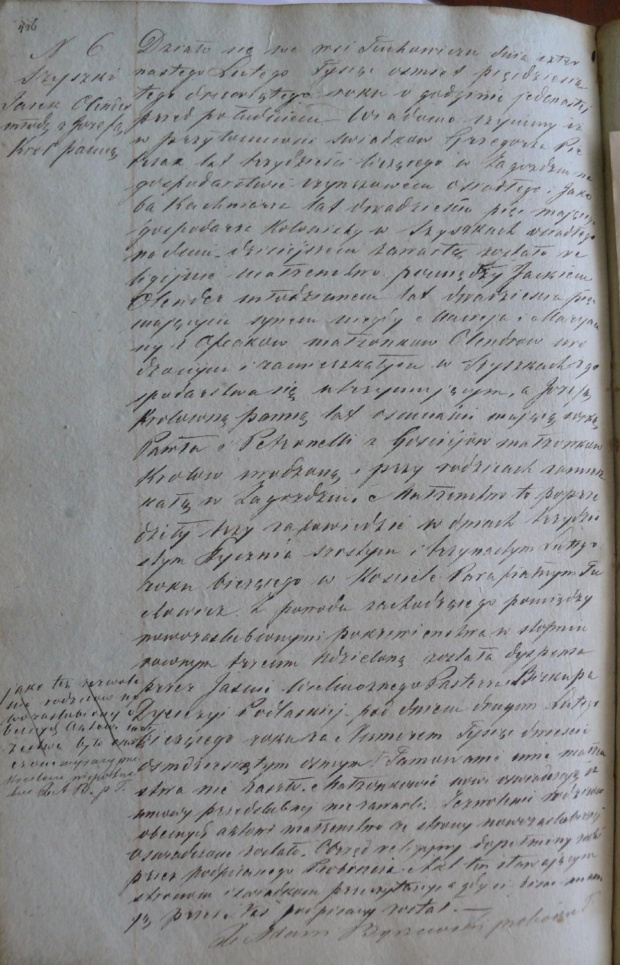 436
N 6
Szyszki
Jacek Olender
młodz z Józefą
Król panną
Działo się we wsi Tuchowiczu dnia czter
nastego Lutego Tysiąc ośmset pięćdziesią
tego dziewiątego roku o godzinie jedenastej
przed południem. Wiadomo czynimy iż
w przytomności świadków Grzegorza
lat trzydzieści liczącego w Zagoździu na
gospodarstwie czynszowem osiadłego i Jaku
ba Kachniarza lat dwadzieścia pięć mające
gospodarza Kolonisty w Szyszkach osiadłego
na dniu dzisiejszem zawarte zostało re
ligijne małżeństwo pomiędzy Jackiem
Olender młodzianem lat dwadzieścia
mającym synem niegdy Macieja i Maryan
ny z małżonków Olendrów uro
dzonym i zamieszkałym w Szyszkach z go
spodarstwa się utrzymującym, a Józefą
Królowną panną lat ośmnaście mającą córką
Pawła i Petronelli z małżonków
Królów urodzoną i przy rodzicach zamiesz
kałą w Zagoździu. Małżeństwo to poprze
dziły trzy zapowiedzie w dniach trzydzie
stym Stycznia szóstym i trzynastym Lutego
roku bieżącego w Kościele Parafialnym Tu
chowicz. Z powodu zachodzącego pomiędzy
nowozaślubionymi pokrewieństwa w stopniu
równym trzecim udzieloną została dyspensa
przez Jaśnie Wielmożnego Pasterza Biskupa
Dyecezyi Podlaskiej pod dniem drugim Lutego
bieżącego roku za Numerem Tysiąc dwieście
ośmdziesiątym ósmym. Tamowanie inne małżeń
stwa nie zaszło. Małżonkowie nowi oświadczyli iż
umowy przedślubnej nie zawarli. Zezwolenie rodziców
obecnych aktowi małżeństwa ze strony nowozaślubionej
oświadczone zostało. Obrzęd religijny dopełniony został
przez podpisanego Proboszcza. Akt ten stawającym
stronom i świadkom przeczytany a gdy ci pisać nie umie
ją przez Nas podpisany został.
X. Adam proboszcz T
jako też zezwole
nie rodziców no
wozaślubionej o
becnych aktowi małż
żeństwa było ustn